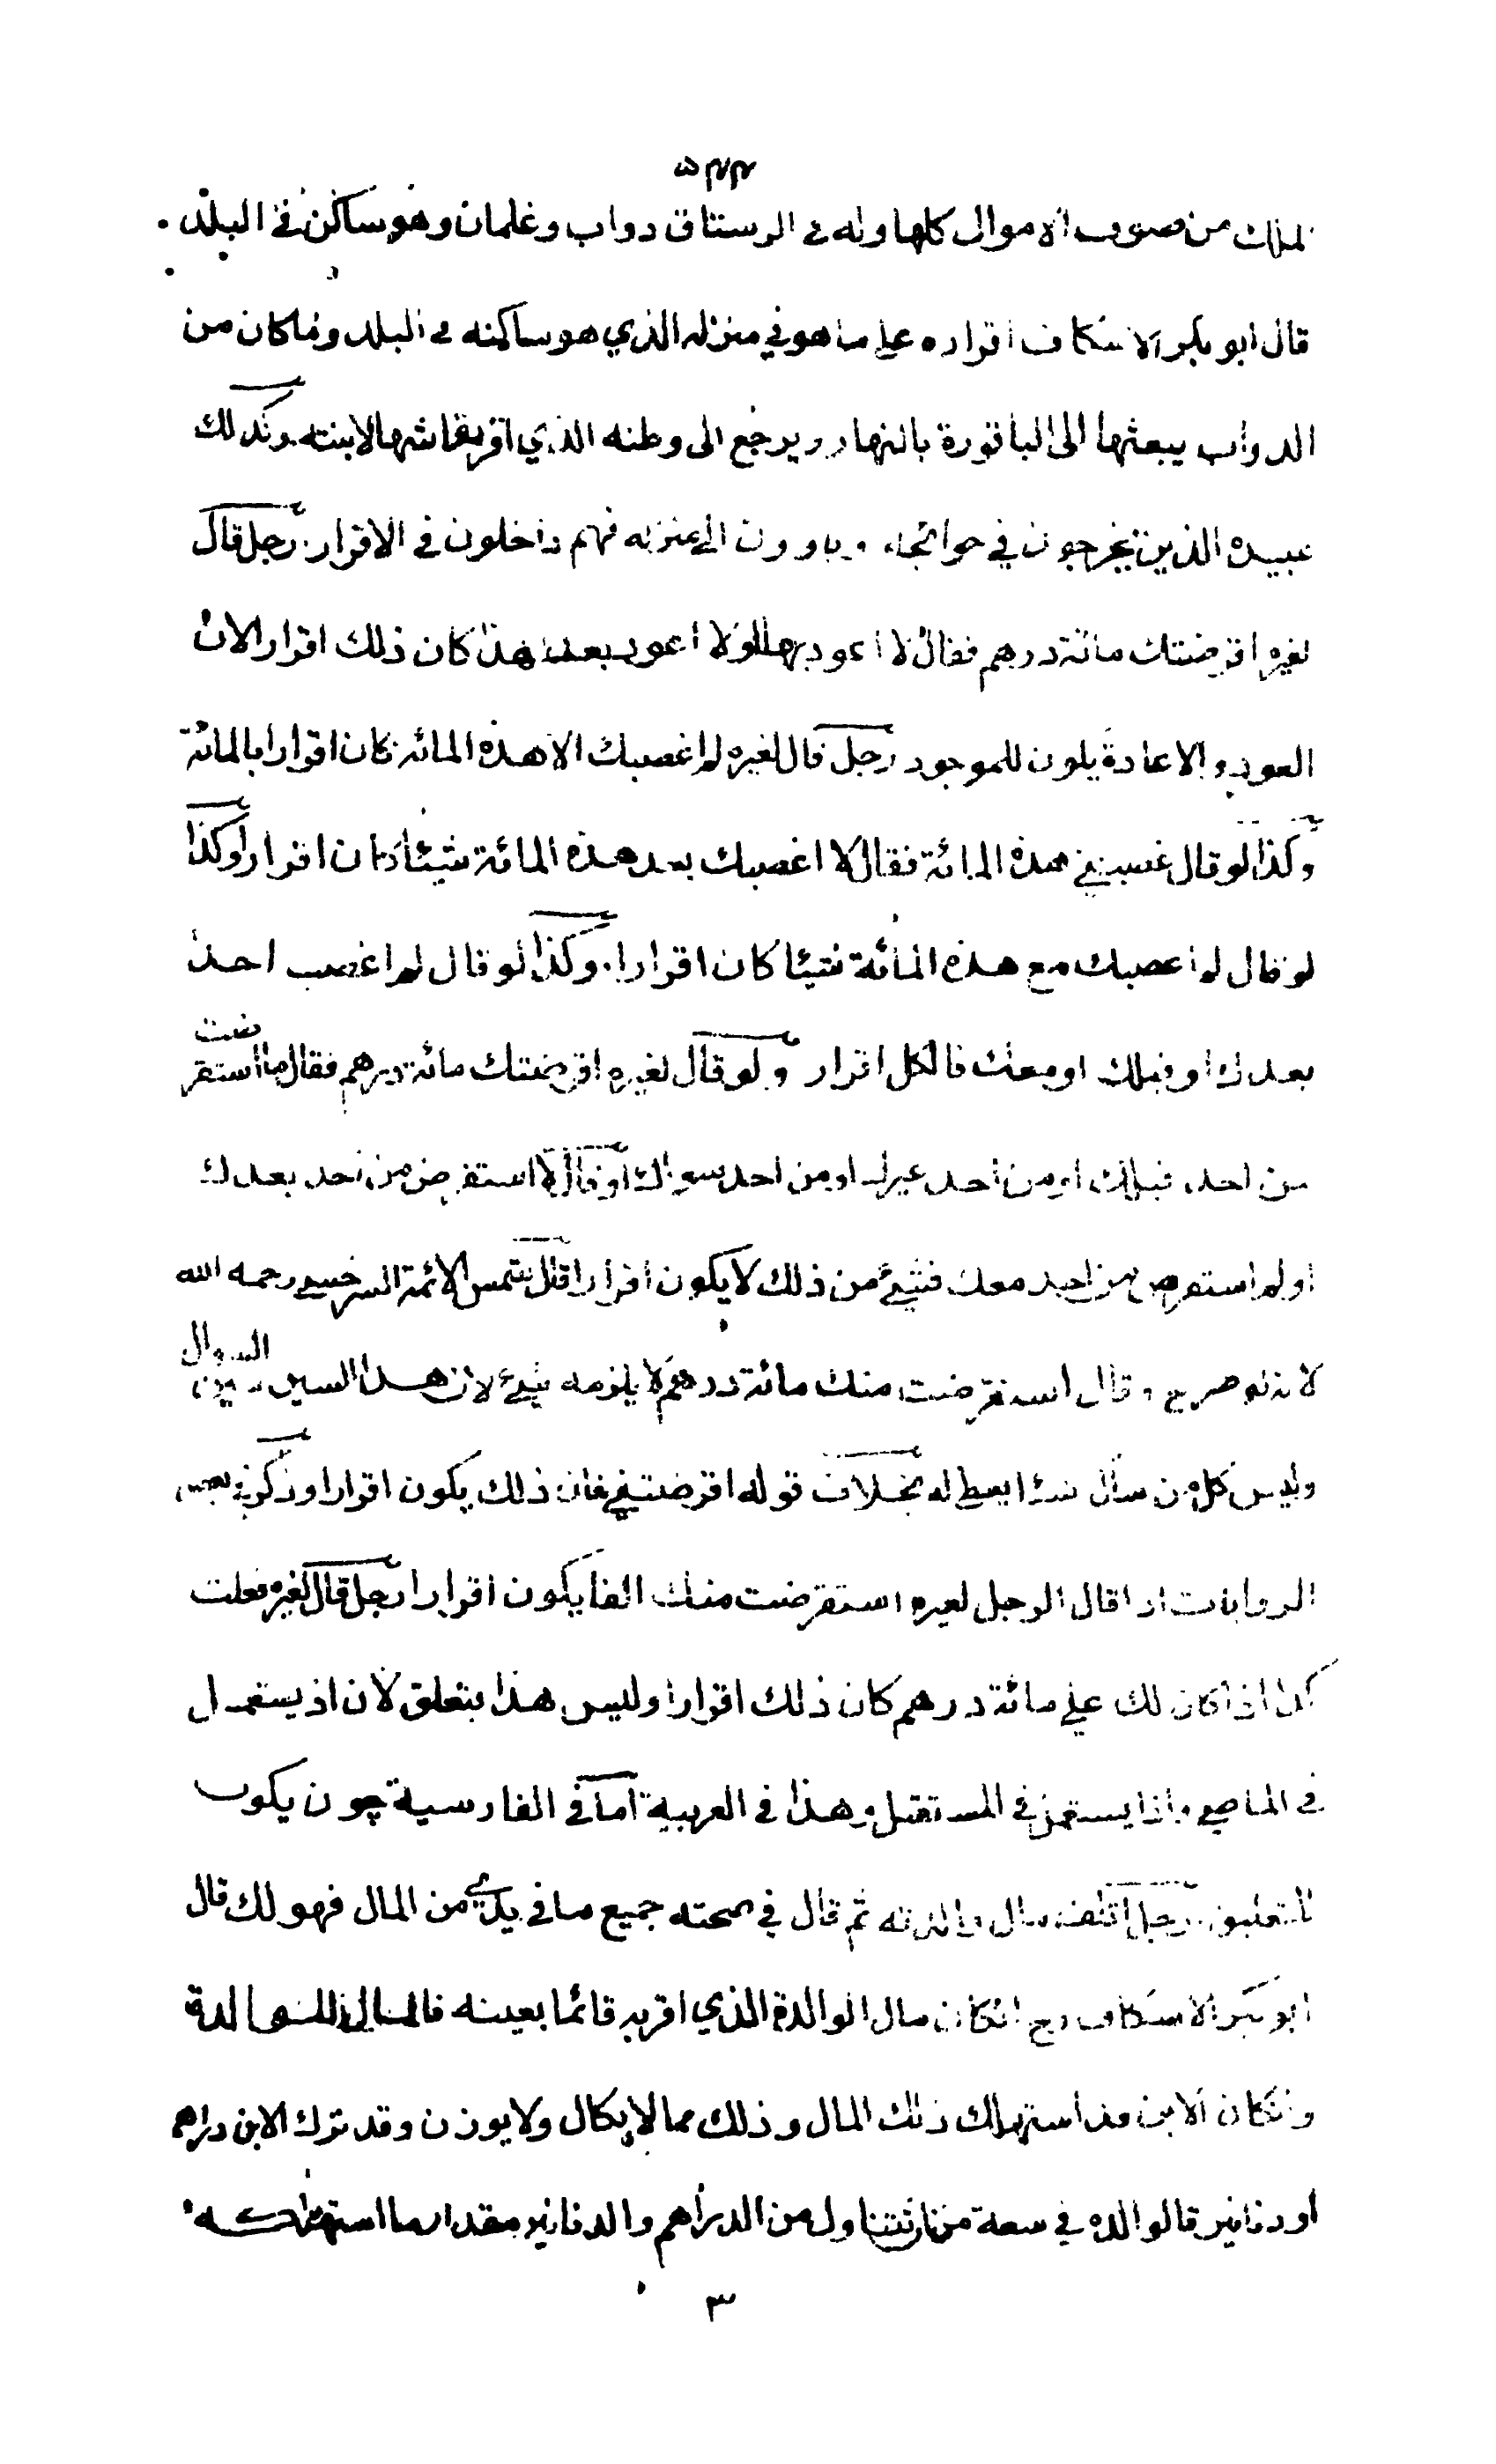 ٥٢٢
الملك من صنوف الاموال كلها وله في الرستاق دواب وغلمان وهو ساكن في البلد .
قال ابو بكر الاسكاف اقراره على ما هو في منزله الذي هو ساكنه في البلد وما كان من
الدواب يبعثها الى الباقورة بالنهار ويرجع الى وطنه الذي اقر بقماشها لابنته وكذلك
عبيده الذين يخرجون في حوائجه وياوون الى منزله فهم داخلون في الاقرار . رجل قال
لغيره اقرضتك مائة درهم فقال لا اعود بها ولا اعود بعد هذا كان ذلك اقرارا لان
العود والاعادة يكون للموجود رجل قال لغيره لم اغصبك الا هذه المائة كان اقرارا بالمائة
وكذا لو قال غصبتني هذه المائة فقال لا اغصبك بعد هذه المائة شيئا كان اقرارا وكذا
لو قال لم اغصبك مع هذه المائة شيئا كان اقرارا . وكذا لو قال لم اغصب احدا
بعدك او قبلك او معك فالكل اقرار ولو قال لغيره اقرضتك مائة درهم فقال ما استقرضت
من احد قبلك او من احد غيرك او من احد سواك او قال لا استقرض من احد بعدك
او لم استقرض من احد معك فشيئ من ذلك لا يكون اقرارا قال شمس الائمة السرخسي رحمه الله
لانه لو صرح وقال استقرضت منك مائة درهم لا يلزمه شيئ لان هذا السين سين السوال
وليس كل من سأل شئا يعطى له بخلاف قوله اقرضتني فان ذلك يكون اقرارا وذكر في بعض
الروايات اذا قال الرجل لغيره استقرضت منك الفا يكون اقرارا رجل قال لغيره فعلت
كذا اذا كان لك علي مائة درهم كان ذلك اقرارا وليس هذا بتعلق لان اذ يستعمل
في الماضي واذا يستعمل في المستقبل وهذا في العربية اما في الفارسية چون يكون
للتعليق . رجل اتلف مال والدته ثم قال في صحته جميع ما في يدي من المال فهو لك قال
ابو بكر الاسكاف رح ان كان مال الوالدة الذي اقر به قائما بعينه فالمال للوالدة
وان كان الابن قد استهلك ذلك المال وذلك مما لا يكال ولا يوزن وقد ترك الابن دراهم
او دنانير فالوالده في سعة من ان تتناول من الدراهم والدنانير مقدار ما استهلكه
٣